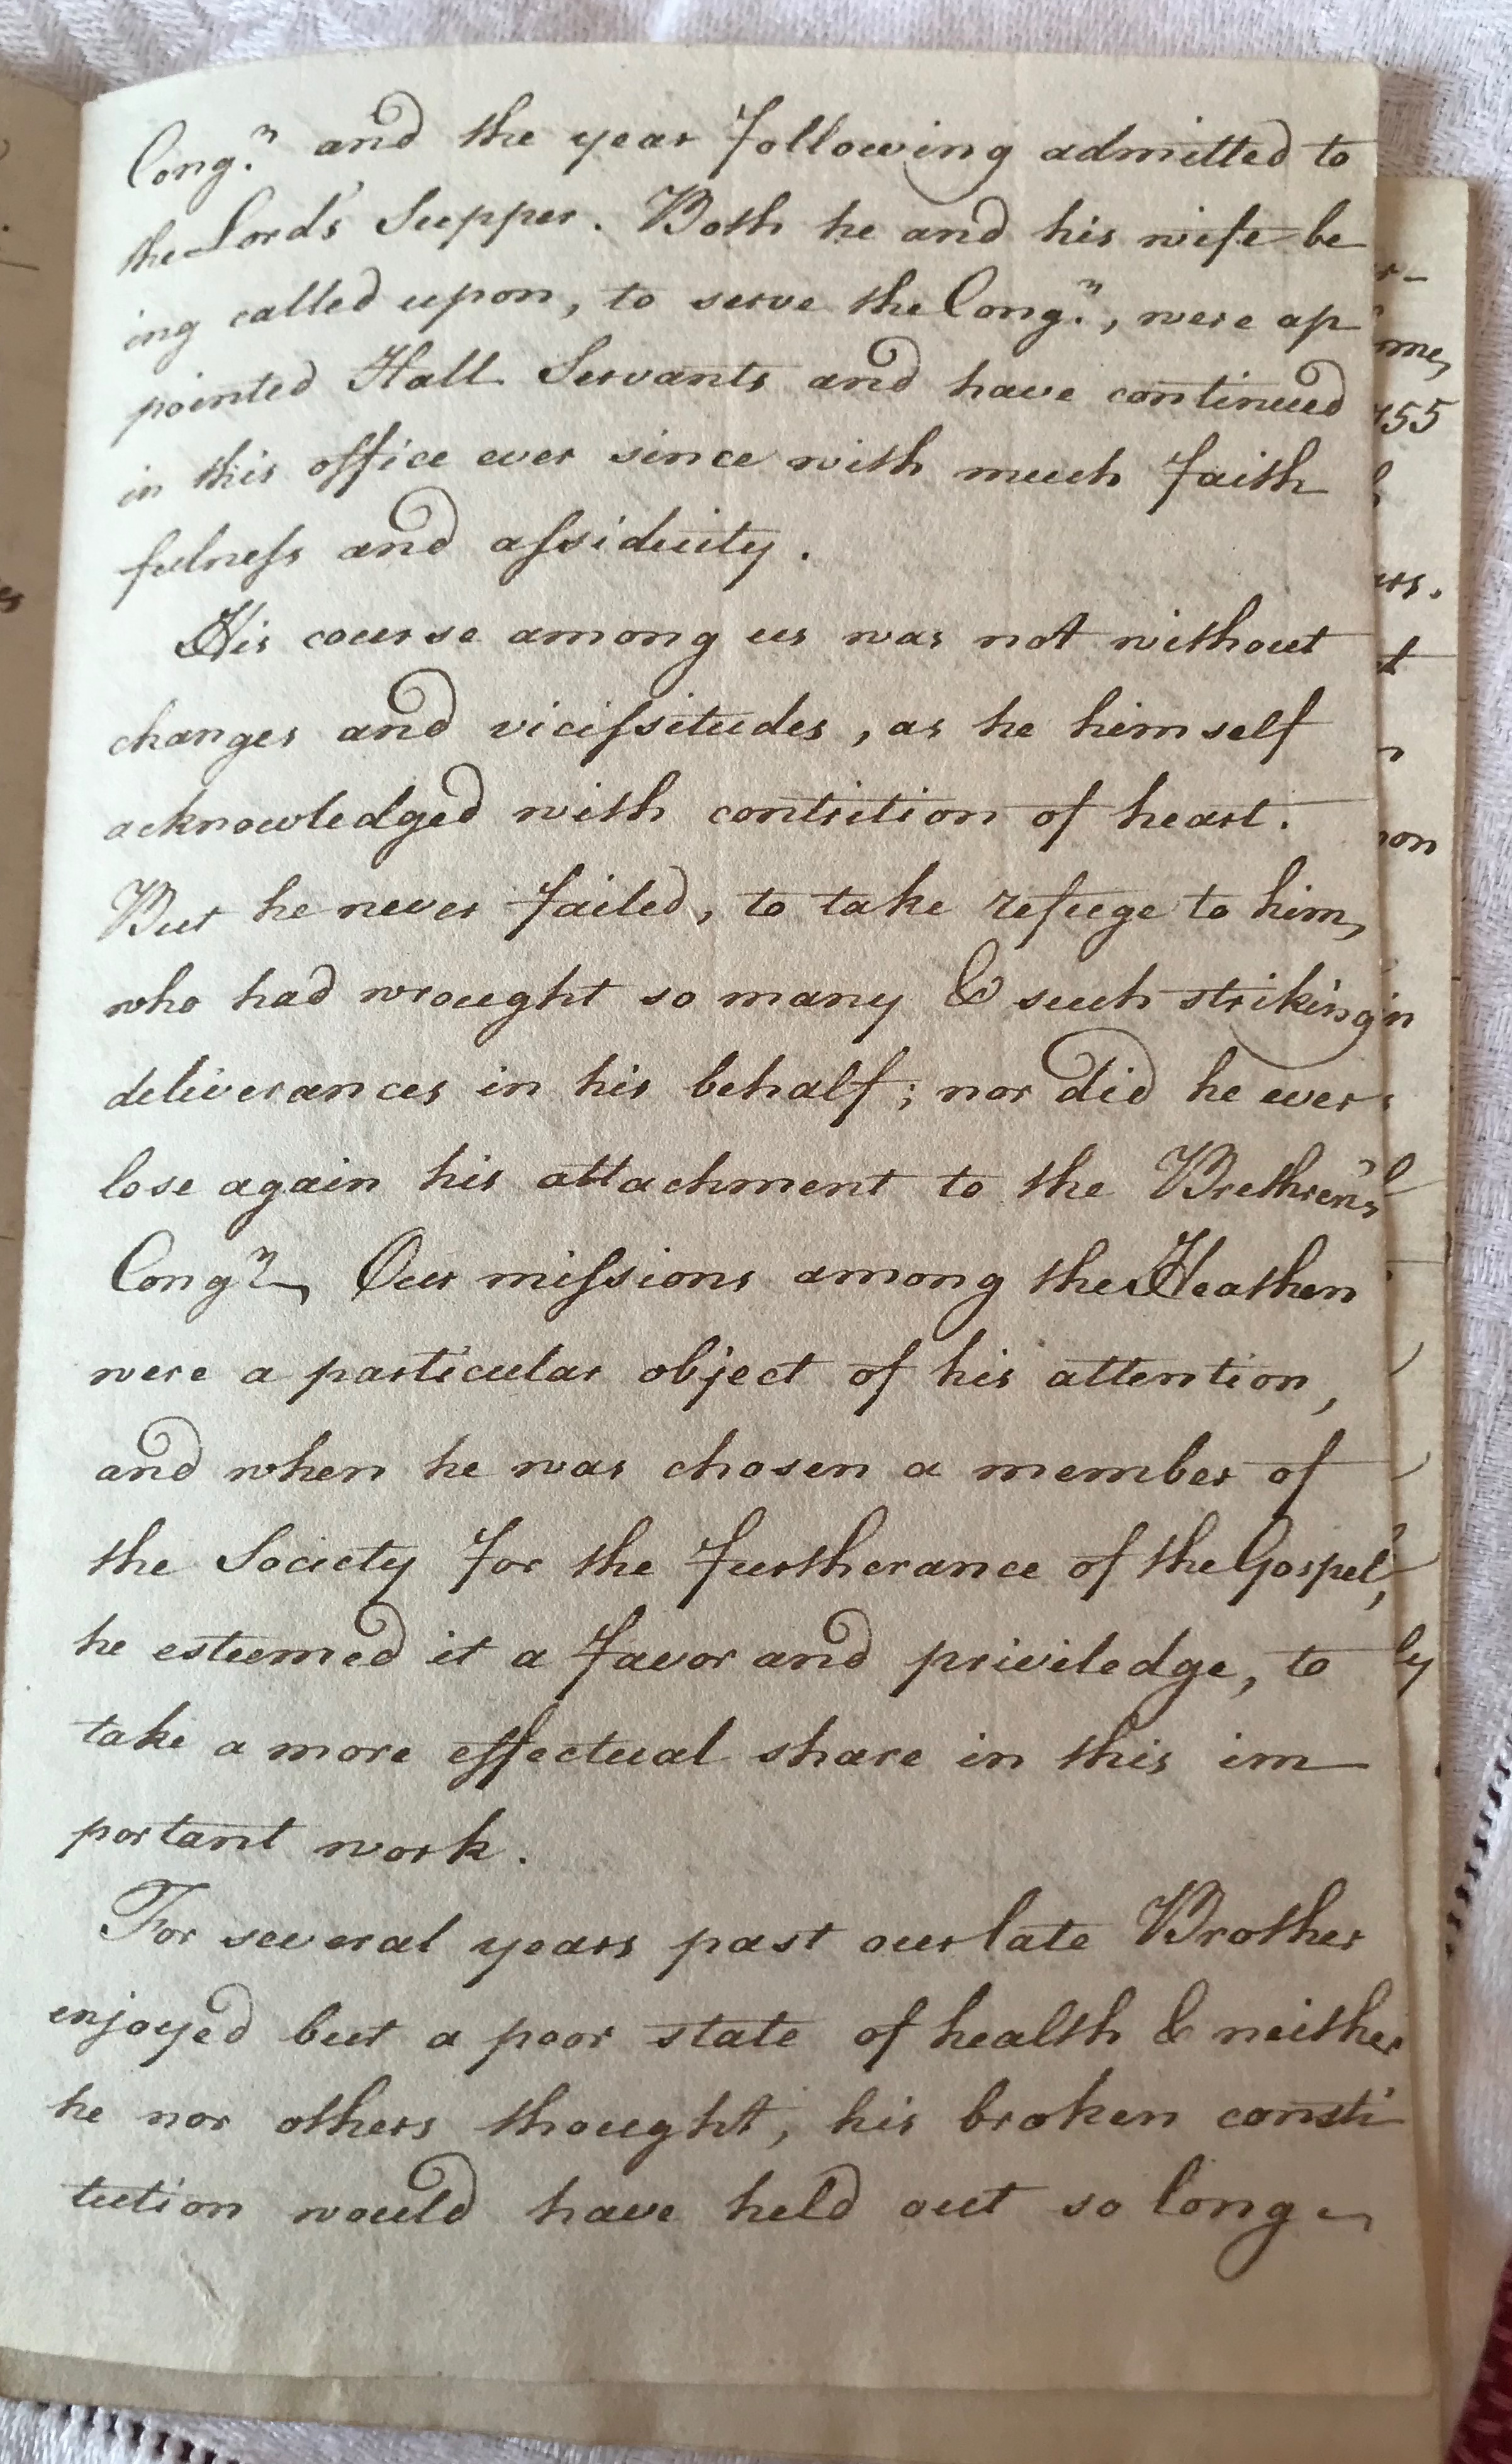 Cong.ⁿ and the year following admitted to
the Lord's Supper. Both he and his wife be
ing called upon, to serve the Cong.ⁿ, were ap
pointed Hall Servants and have continued
in this office ever since with much faith
fulneſs and aſsiduity.
His course among us was not without
changes and viciſsitudes, as he himself
acknowledged with contrition of heart.
But he never failed, to take refuge to him,
who had wrought so many & such striking
deliverances in his behalf; nor did he ever
lose again his attachment to the Brethren's
Congⁿ. Our miſsions among the Heathen
were a particular object of his attention,
and when he was chosen a member of
the Society for the furtherance of the Gospel,
he esteemed it a favor and priviledge, to
take a more effectual share in this im
portant work.
For several years past our late Brother
enjoyed but a poor state of health & neither
he nor others thought, his broken consti
tution would have held out so long